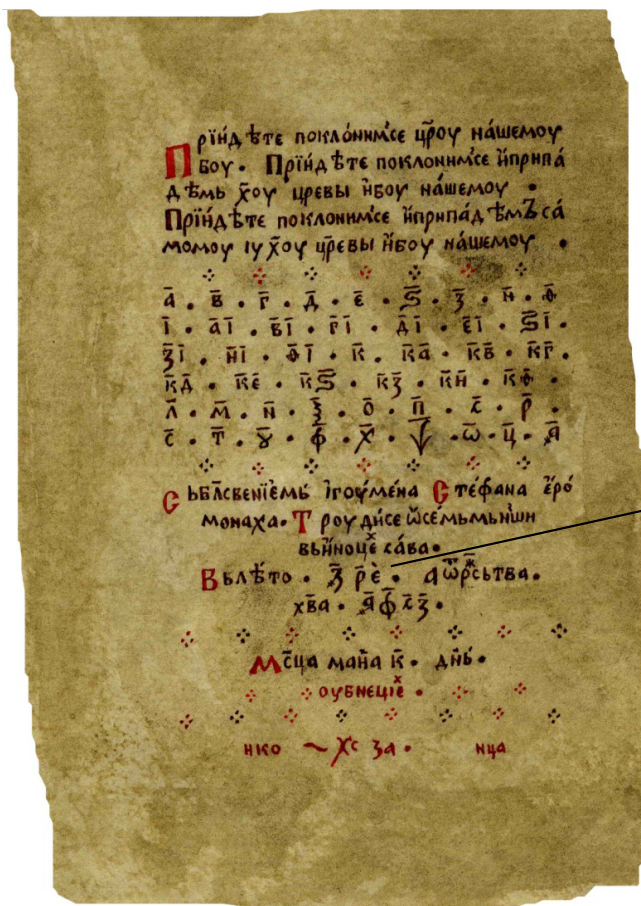 Прїйдѣте поклонимсе цр҃оу нашемоу
б҃оу · Прїйдѣте поклонимсе ѝприпа
дѣмь х҃оу цр҃евы ѝб҃оу нашемоу ·
Прїйдѣте поклонимсе ѝприпадѣмъ са
момоу іу х҃оу цр҃евы ѝб҃оу нашемоу ·
а҃ · в҃ · г҃ · д҃ · е҃ · ѕ҃ · з҃ · и҃ · ѳ҃
і҃ · а҃і · в҃і · г҃і · д҃і · е҃і · ѕ҃і ·
з҃і · и҃і · ѳ҃і · к҃ · к҃а · к҃в · к҃г ·
к҃д · к҃е · к҃ѕ · к҃з · к҃и · к҃ѳ ·
л҃ · м҃ · н҃ · ѯ҃ · о҃ · п҃ · ч҃ · р҃ ·
с҃ · т҃ · ꙋ҃ · ф҃ · х҃ · ѱ · ѡ҃ · ц҃ · а҃
Сьбл҃свенїемь ігоумена Стефана еро
монаха · Троудисе ѡсемьмьншн
вьиноцеⷯ сава ·
Вьлѣто · з҃ р҃е · аѿрⷤсьтва ·
хв҃а · а҃ф҃ч҃з҃ ·
Мс҃ца маиа к҃ · днь ·
оубнецїеⷯ ·
ико ~ х҃с за · ица